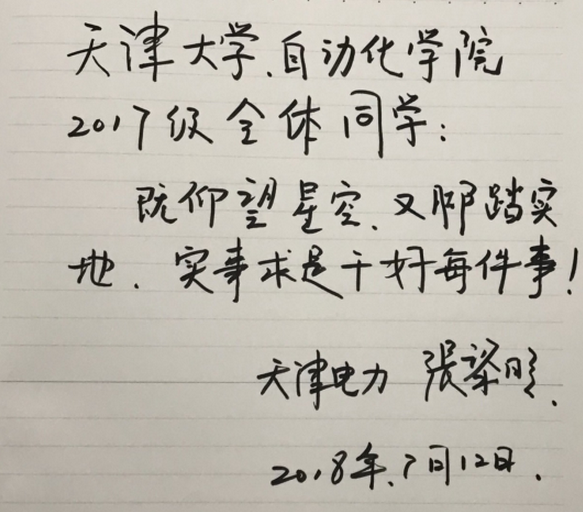 天津大学、自动化学院
2017级全体同学：
既仰望星空、又脚踏实
地、实事求是干好每件事！
天津电力 張黎明、
2018年、7月12日.